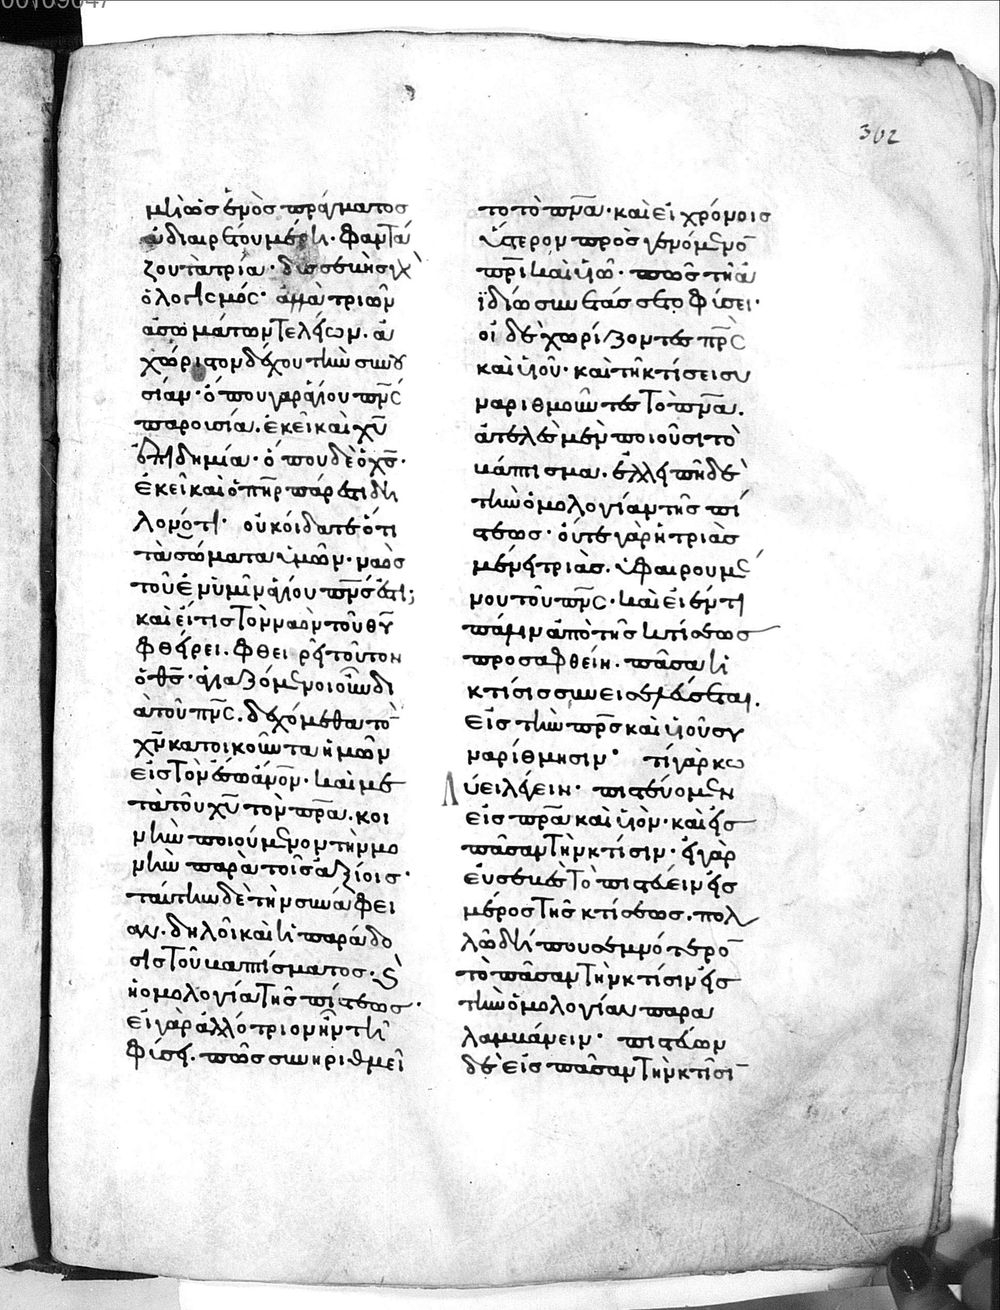 302
μὴ ὡς ἑνὸς πράγματος
ἀδιαιρέτου μέρη· φαντά
ζου τὰ τρία· δυσσεβὴς γὰρ
ὁ λογισμός· ἀλλὰ τριῶν
ἀσωμάτων τελείων· ἀ
χώριστον δέχου τὴν συνου
σίαν· ὅπου γὰρ ἁγίου πνς
παρουσία. ἐκεῖ καὶ χυ
ἐπιδημία· ὅπου δὲ ὁ χς·
ἐκεῖ καὶ ὁ πηρ πάρεστι δη
λονότι· οὐκ οἴδατε ὅτι
τὰ σώματα ὑμῶν· ναὸς
τοῦ ἐν ὑμῖν ἁγίου πνς ἐστι;
καὶ εἴ τις τὸν ναὸν τοῦ θυ
φθείρει. φθειρεῖ τοῦτον
ὁ θς· ἁγιαζόμενοι οὖν δι
ὰ τοῦ πνς. δεχόμεθα τὸν
χν κατοικοῦντα ἡμῶν
εἰς τὸν ἔσω ἄνον· καὶ με
τὰ τοῦ χυ τὸν πρα. κοι
νὴν ποιούμενον τὴν μο
νὴν παρὰ τοῖς ἀξίοις·
ταύτην δὲ τὴν συνάφει
αν. δηλοῖ καὶ ἡ παράδο
σις τοῦ βαπτίσματος· καὶ
ἡ ὁμολογία τῆς πίστεως·
εἰ γὰρ ἀλλότριον ἦν τῇ
φύσει. πῶς συνηριθμεῖ
το τὸ πνα· καὶ εἰ χρόνοις
ὕστερον προσγενόμενον
πρι καὶ υἱῷ· πῶς τῇ ἀ
ϊδίῳ συνετάσσετο φύσει·
οἱ δὲ χωρίζοντες πρς
καὶ υἱοῦ· καὶ τῇ κτίσει συ
ναριθμοῦντες τὸ πνα.
ἀτελὲς μὲν ποιοῦσι τὸ
βάπτισμα. ἐλλιπῆ δὲ
τὴν ὁμολογίαν τῆς πί
στεως· οὔτε γὰρ ἡ τριὰς
μένει τριὰς. ὑφαιρουμέ
νου τοῦ πνς· καὶ εἰ ἕν τι
πάλιν ἀπὸ τῆς κτίσεως
προσαφθείη. πᾶσα ἡ
κτίσις συνεισελεύσεται.
εἰς τὴν πρς καὶ υἱοῦ συ
ναρίθμησιν· τί γὰρ κω
λύει λέγειν· πιστεύομεν
εἰς πρα καὶ υἱὸν· καὶ εἰς
πᾶσαν τὴν κτίσιν· εἰ γὰρ
εὐσεβὲς τὸ πιστεύειν εἰς
μέρος τῆς κτίσεως. πολ
λῶ δήπου σεμνότερον
τὸ πᾶσαν τὴν κτίσιν εἰς
τὴν ὁμολογίαν παρα
λαμβάνειν· πιστεύων
δὲ εἰς πᾶσαν τὴν κτίσιν